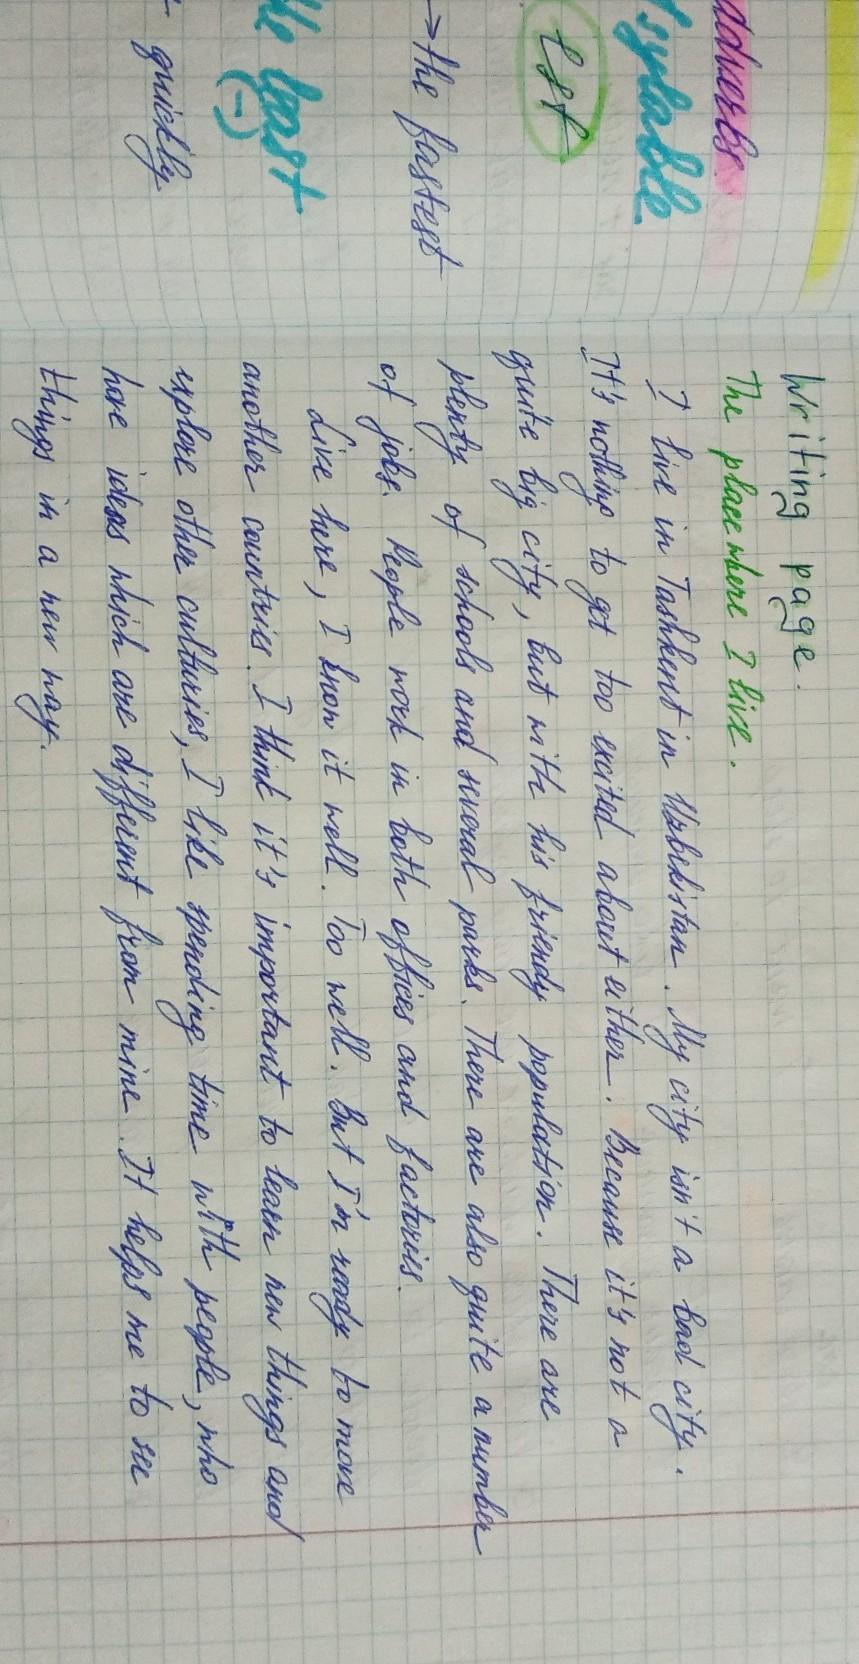 adverbs
syllable
est
→ the fastest
the least
(-)
- quickly
Writing page.
The place where I live.
I live in Tashkent in Uzbekistan. My city isn't a bad city.
It's nothing to get too excited about either. Because it's not a
quite big city, but with his friendy population. There are
plenty of schools and several parks. There are also quite a number
of jobs. People work in both offices and factories.
Live here, I know it well. Too well. But I'm ready to move
another countries. I think it's important to learn new things and
explore other culturies, I like spending time with people, who
have ideas which are different from mine. It helps me to see
things in a new way.